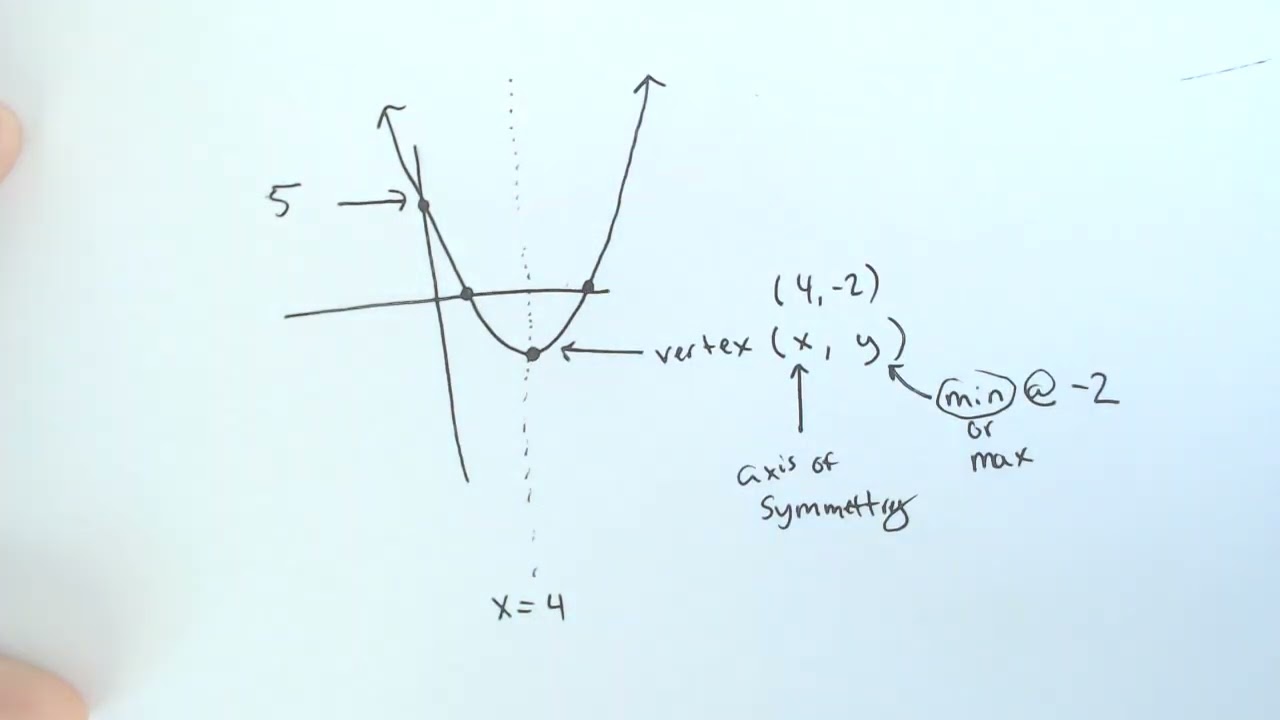 5
(4,-2)
vertex (x, y)
min @ -2
or
max
axis of
symmettry
x=4